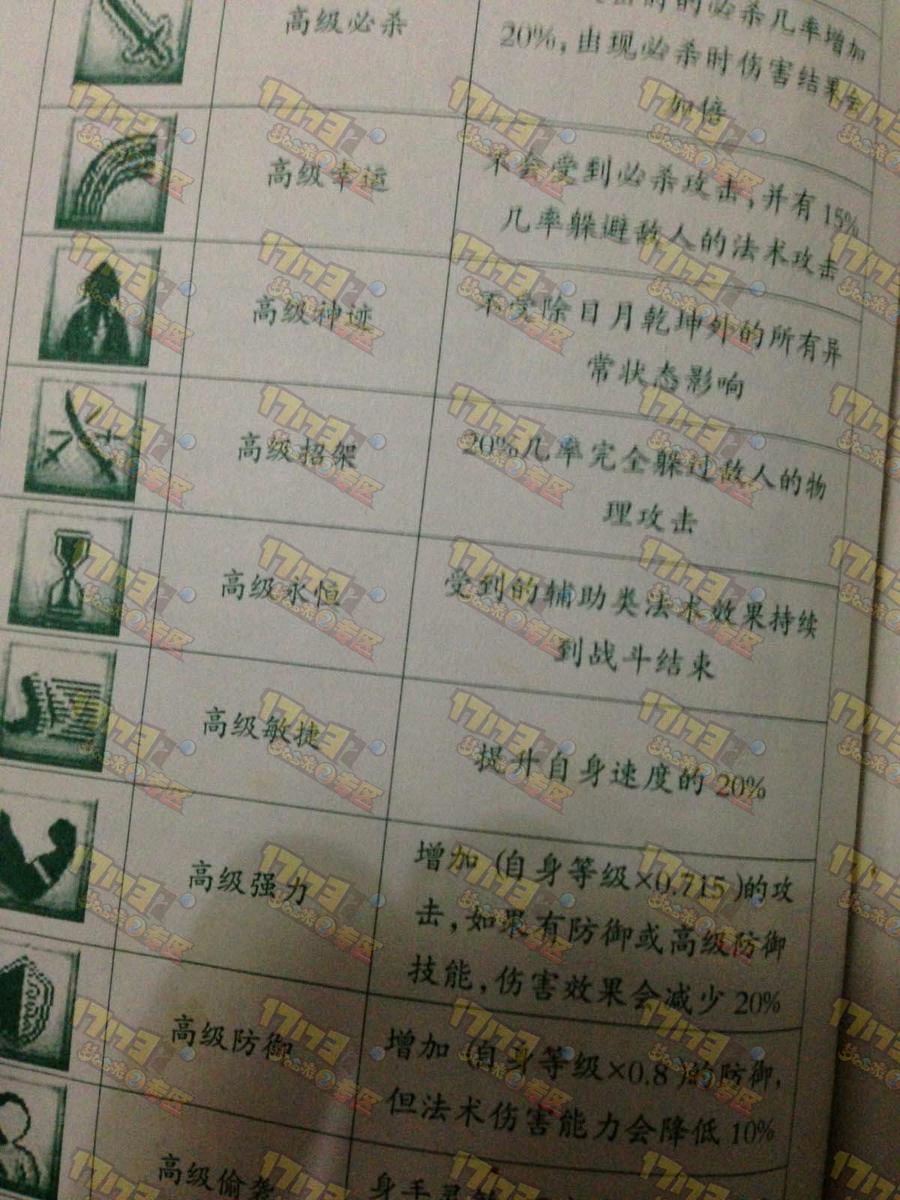 高级必杀
的必杀几率增加
20%,出现必杀时伤害结果会
加倍
高级幸运
不会受到必杀攻击,并有15%
几率躲避敌人的法术攻击
高级神迹
不受除日月乾坤外的所有异
常状态影响
高级招架
20%几率完全躲过敌人的物
理攻击
高级永恒
受到的辅助类法术效果持续
到战斗结束
高级敏捷
提升自身速度的20%
高级强力
增加(自身等级×0.715)的攻
击,如果有防御或高级防御
技能,伤害效果会减少20%
高级防御
增加(自身等级×0.8)的防御,
但法术伤害能力会降低10%
高级偷袭
身手
17173
专区